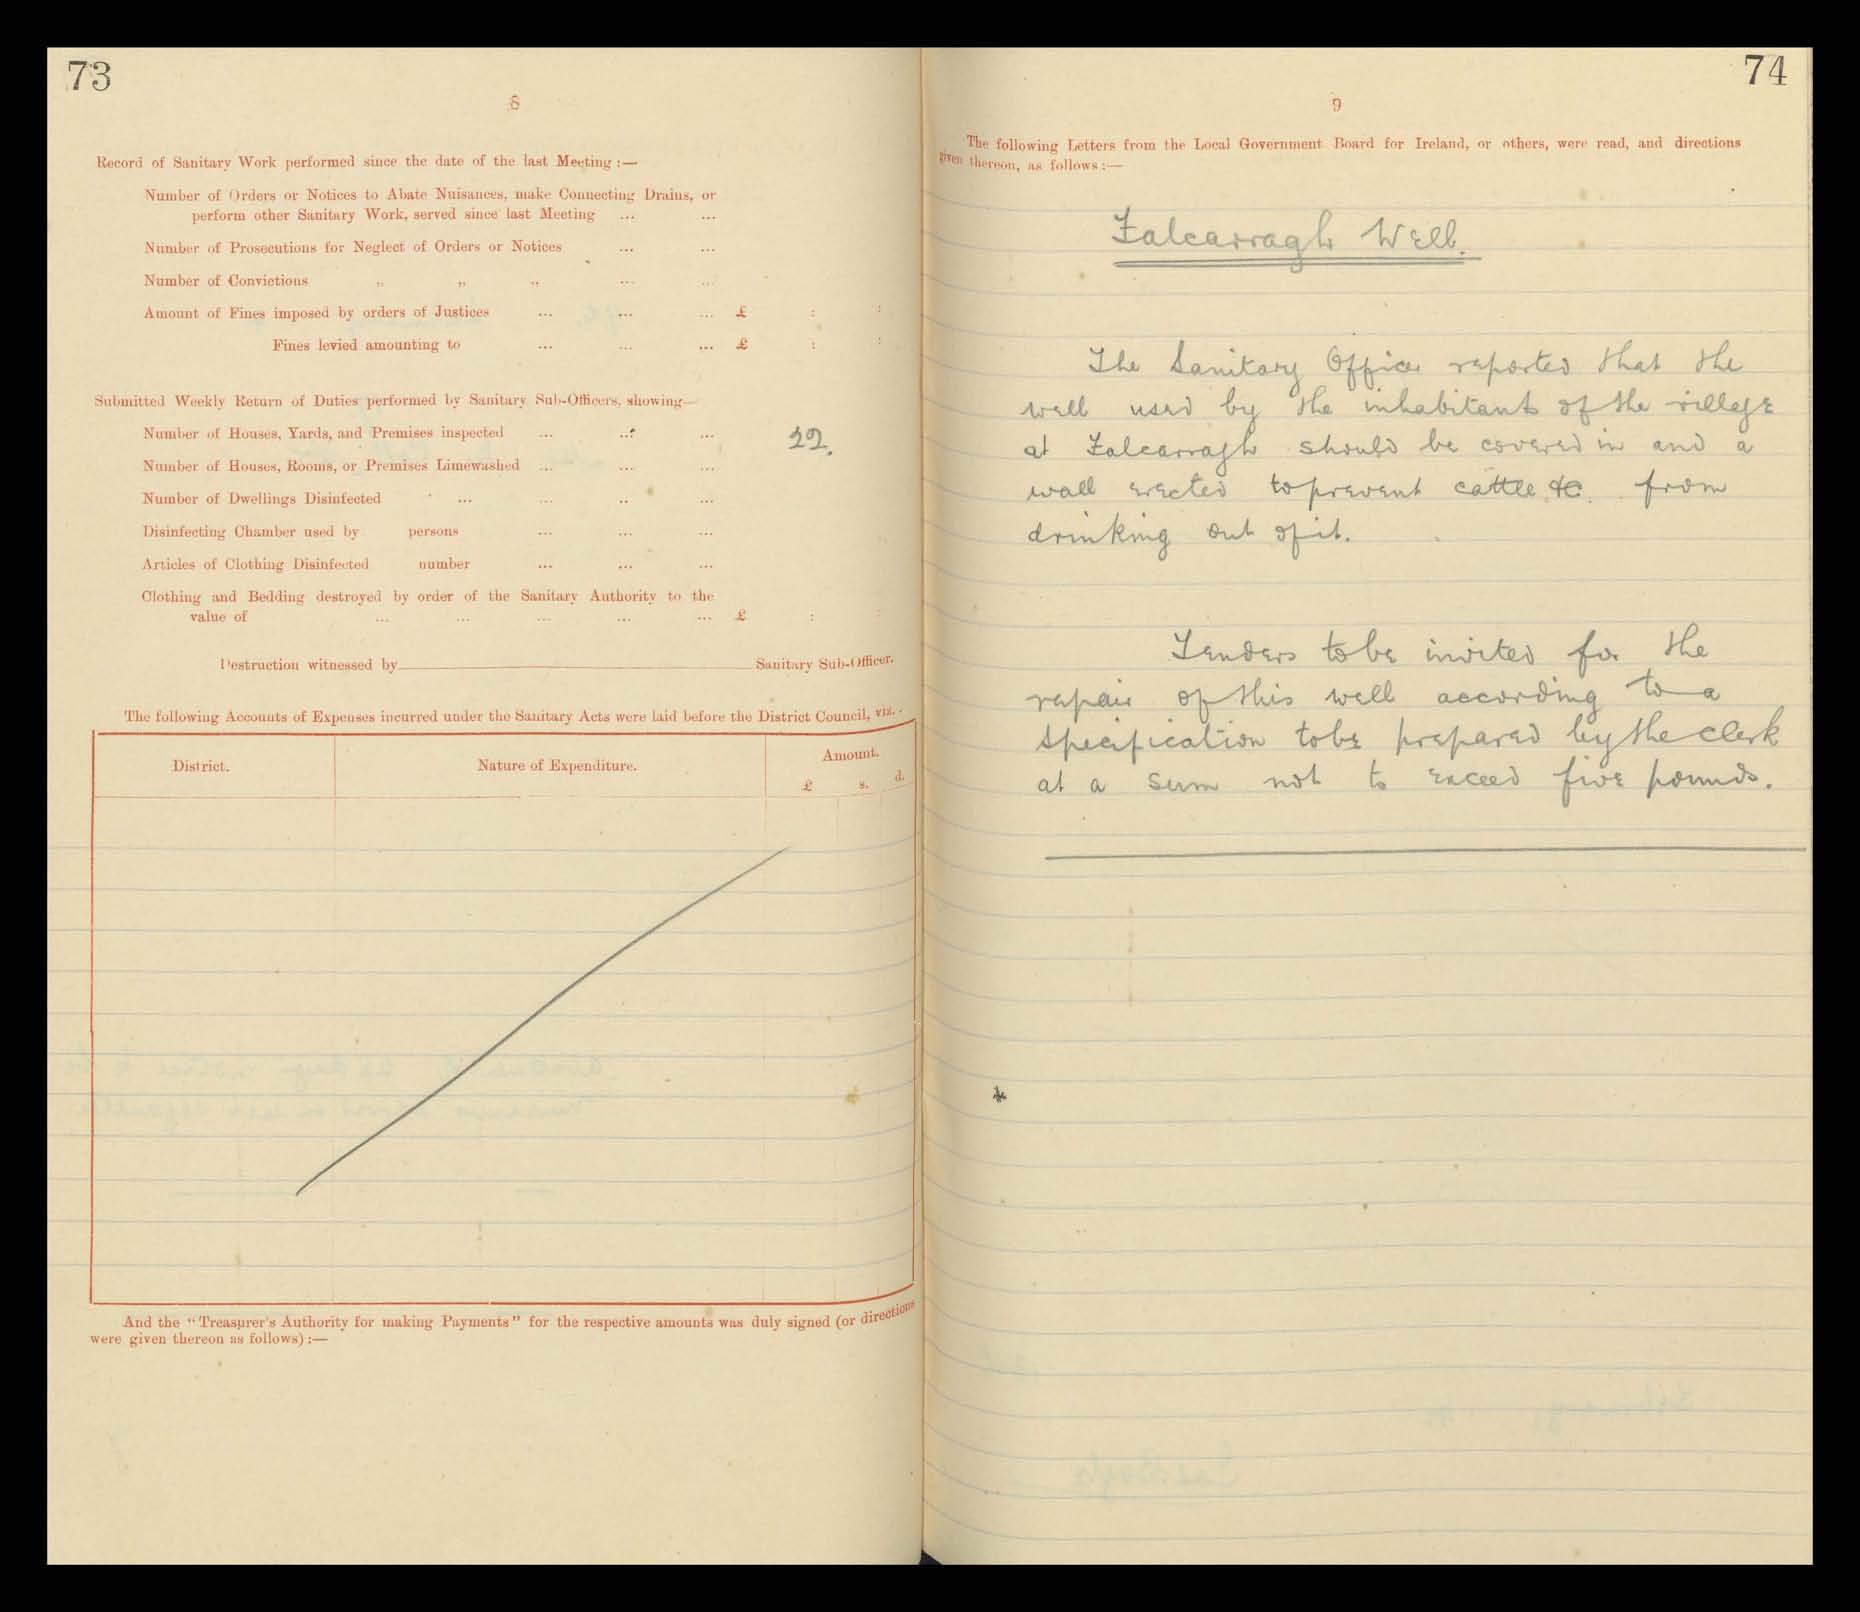 73
8
Record of Sanitary Work performed since the date of the last Meeting :—
Number of Orders or Notices to Abate Nuisances, make Connecting Drains, or
perform other Sanitary Work, served since last Meeting ... ...
Number of Prosecutions for Neglect of Orders or Notices ... ...
Number of Convictions „ „ „ ... ...
Amount of Fines imposed by orders of Justices ... ... ... £ : :
Fines levied amounting to ... ... ... £ : :
Submitted Weekly Return of Duties performed by Sanitary Sub-Officers, showing—
Number of Houses, Yards, and Premises inspected ... ... ... 22.
Number of Houses, Rooms, or Premises Limewashed ... ... ...
Number of Dwellings Disinfected ... ... ... ...
Disinfecting Chamber used by persons ... ... ...
Articles of Clothing Disinfected number ... ... ...
Clothing and Bedding destroyed by order of the Sanitary Authority to the
value of ... ... ... ... ... £ : :
Destruction witnessed by Sanitary Sub-Officer.
The following Accounts of Expenses incurred under the Sanitary Acts were laid before the District Council, viz. :
District. Nature of Expenditure. Amount.
£ s. d.
And the "Treasurer's Authority for making Payments" for the respective amounts was duly signed (or directions
were given thereon as follows) :—
74
9
The following Letters from the Local Government Board for Ireland, or others, were read, and directions
given thereon, as follows :—
Falcarragh Well.
The Sanitary Officer reported that the
well used by the inhabitants of the village
at Falcarragh should be covered in and a
wall erected to prevent cattle &c. from
drinking out of it.
Tenders to be invited for the
repair of this well according to a
specification to be prepared by the clerk
at a sum not to exceed five pounds.